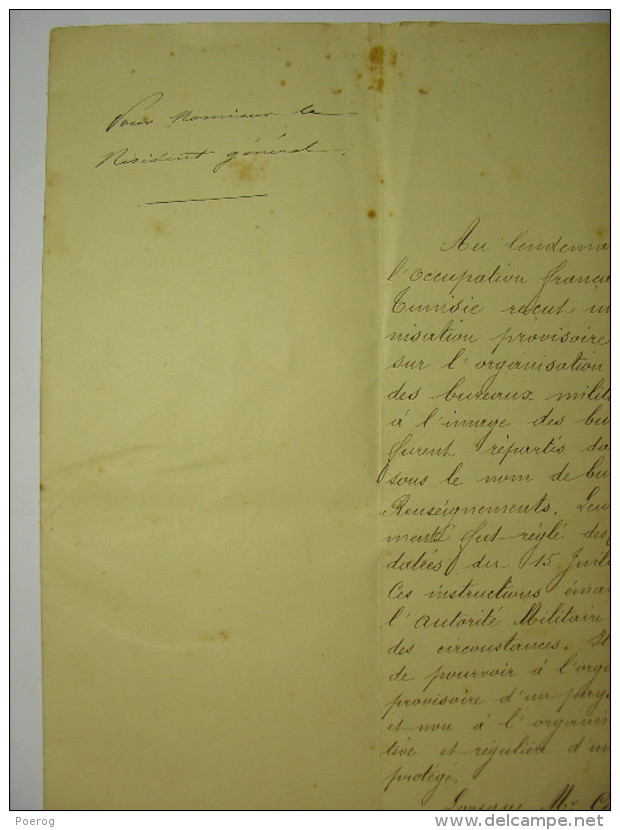 Pour Monsieur le
Résident général.
Au lendema
l'Occupation françai
Tunisie reçut un
nisation provisoire
sur l'organisation
des bureaux milit
à l'image des bu
furent répartis da
sous le nom de bu
Renseignements. Leu
ment fut réglé des
datées du 15 Juil
Ces instructions éma
l'autorité Militaire
des circonstances. Il
de pourvoir à l'orga
provisoire d'un pays
et non à l'organis
tive et régulière d'un
protégé.
Lorsque Mr C
Poerog
delcampe.net